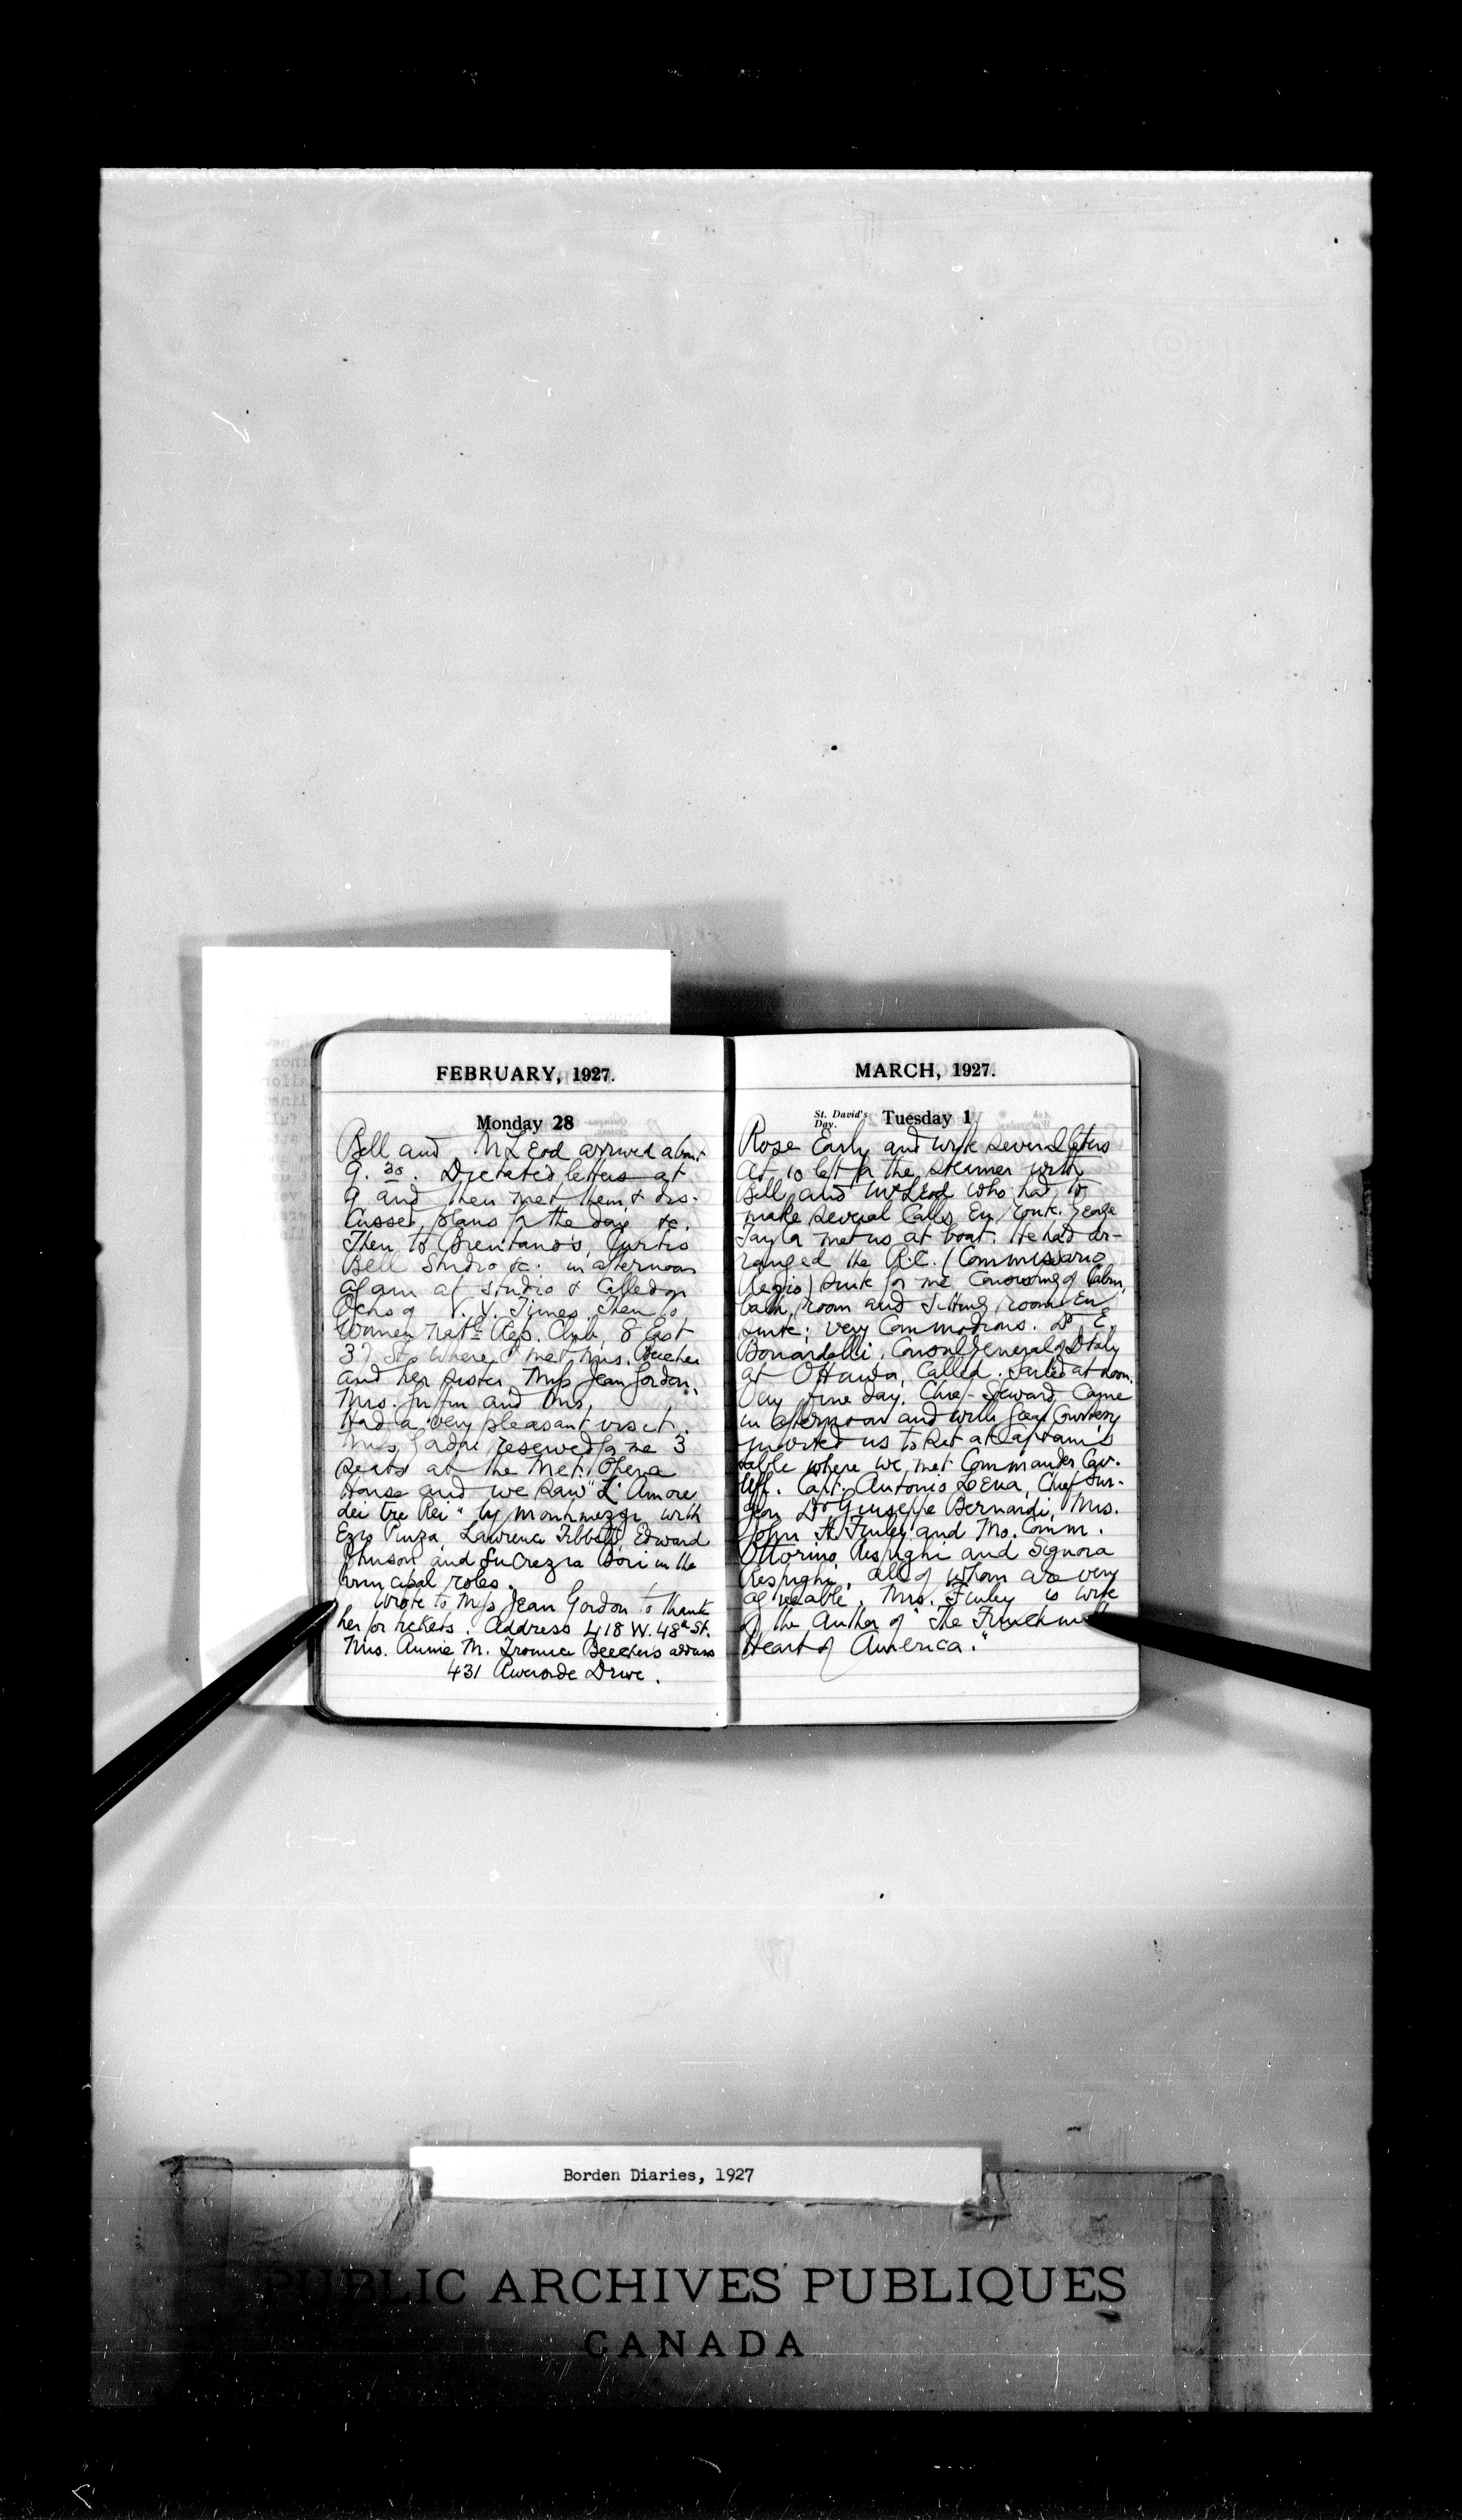 FEBRUARY, 1927.
Monday 28
Bell and McLeod arrived about
9.30. Dictated letters at
9 and then met them & dis-
cussed plans for the day &c.
Then to Brentano's, Curtis
Bell Studio &c. in afternoon
again at studio & called on
Ochs of N.Y. Times. Then to
Women Natl Rep. Club, 8 East
37 St. where I met Mrs. Beecher
and her sister Miss Jean Gordon,
Mrs. and Mrs.
Had a very pleasant visit.
Miss Gordon reserved for me 3
seats at the Met. Opera
House and we saw "L'Amore
dei tre Rei" by Montmezzi with
Ezio Pinza, Lawrence Tibbett, Edward
Johnson and Lucrezia Bori in the
principal roles.
Wrote to Miss Jean Gordon to thank
her for tickets. Address 418 W. 48th St.
Mrs. Annie M. Beecher's address
431 Riverside Drive.
MARCH, 1927.
St. David's Day.
Tuesday 1
Rose early and wrote several letters
At 10 left for the steamer with
Bell and McLeod who had to
make several calls en route. George
Taylor met us at boat. He had ar-
ranged the R.C. (Commissario
Regio) suite for me consisting of cabin,
bath room and sitting room en
suite; very commodious. Dr. E.
Bonardelli, Consul General of Italy
at Ottawa, called. Sailed at noon.
Very fine day. Chief Steward came
in afternoon and with great courtesy
invited us to sit at Captain's
table where we met Commander Cav.
Uff. Capt. Antonio Lena, Chief Sur-
geon Dr. Giuseppe Bernardi, Mrs.
John H. Finley and Mo. Comm.
Ottorino Respighi and Signora
Respighi, all of whom are very
agreeable. Mrs. Finley is wife
of the Author of "The French in the
Heart of America."
Borden Diaries, 1927
PUBLIC ARCHIVES PUBLIQUES
CANADA